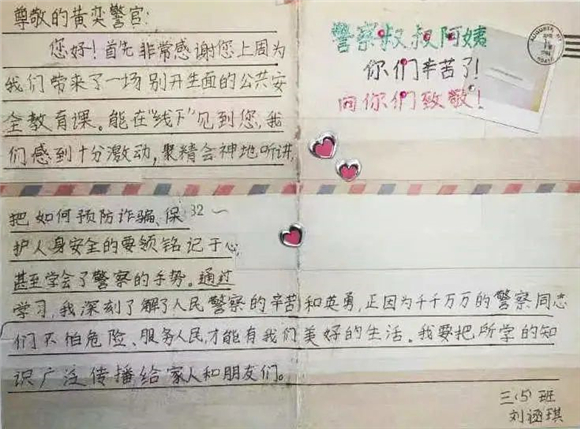 尊敬的黄奕警官:
您好!首先非常感谢您上周为
我们带来了一场别开生面的公共安
全教育课。能在"线下"见到您,我
们感到十分激动,聚精会神地听讲,
警察叔叔阿姨
你们辛苦了!
向你们致敬!
把如何预防诈骗、保
护人身安全的要领铭记于心,
甚至学会了警察的手势。通过
学习,我深刻了解了人民警察的辛苦和英勇,正因为千千万万的警察同志
们不怕危险、服务人民,才能有我们美好的生活。我要把所学的知
识广泛传播给家人和朋友们。
三(5)班
刘涵琪